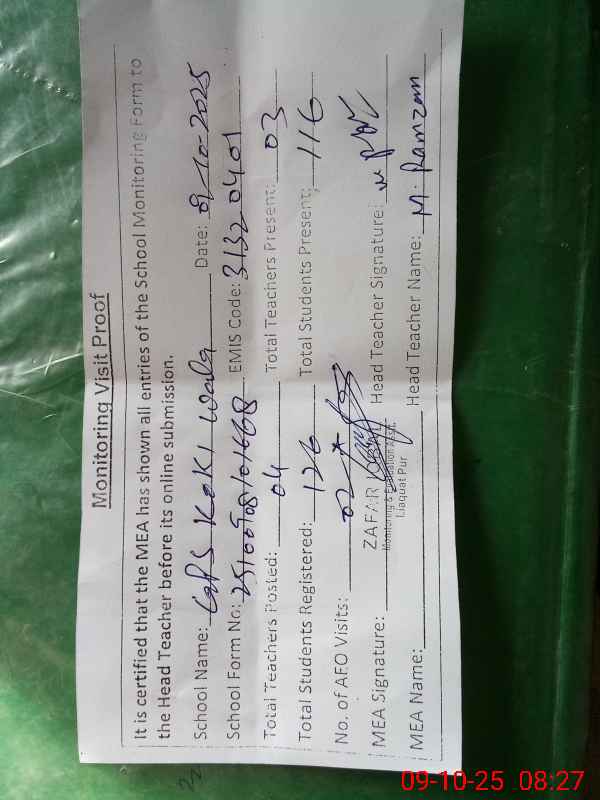 Monitoring Visit Proof
It is certified that the MEA has shown all entries of the School Monitoring Form to
the Head Teacher before its online submission.
School Name: GPS KOKI Wala Date: 09-10-2025
School Form No: EMIS Code: 31320401
Total Teachers Posted: 04 Total Teachers Present: 03
Total Students Registered: 126 Total Students Present: 116
No. of AEO Visits: 02
MEA Signature: ZAFAR IQBAL Head Teacher Signature:
Monitoring & Evaluation Asstt.
Liaquat Pur
MEA Name: Head Teacher Name: M. Ramzan
09-10-25 08:27